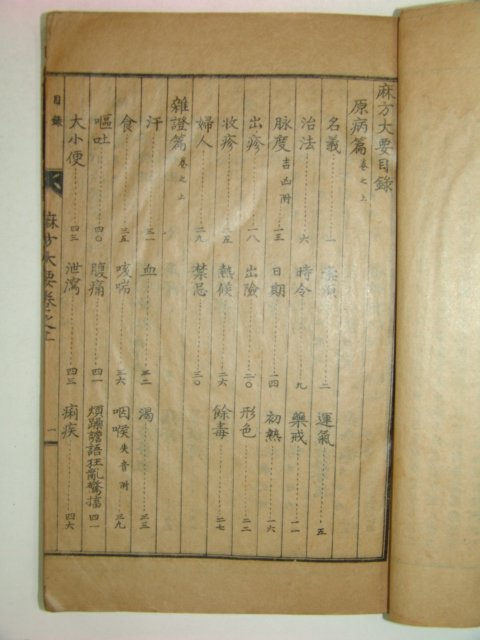 麻方大要目錄
原病篇 卷之上
名義 一 二 運氣 五
治法 六 時令 九 藥戒 一一
脉度 吉凶附 一三 日期 一四 初熱 一六
出疹 一八 出險 二〇 形色 二二
收疹 二五 熱候 二六 餘毒 二七
婦人 二九 禁忌 三〇
雜證篇 卷之上
汗 三一 血 三二 渴 三三
食 三五 咳喘 三六 咽喉 失音附 三九
嘔吐 四〇 腹痛 四一 煩躁譫語狂亂驚搐 四一
大小便 四三 泄瀉 四三 痢疾 四六
目錄 麻方大要卷之上 一